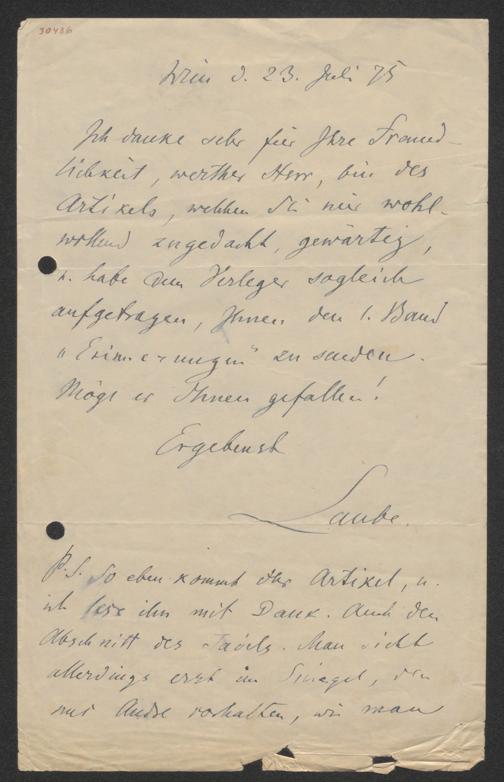 30486
Wien d. 23. Juli 75
Ich danke sehr für Ihre Freund-
lichkeit, werther Herr, bin des
Artikels, welchen Sie mir wohl-
wollend zugedacht, gewärtig,
u. habe dem Verleger sogleich
aufgetragen, Ihnen den 1. Band
„Erinnerungen" zu senden.
Möge er Ihnen gefallen!
Ergebenst
Laube.
P.S. So eben kommt Ihr Artikel, u.
ich lese ihn mit Dank. Auch den
Abschnitt des Tadels. Man sieht
allerdings erst im Spiegel, den
uns Andre vorhalten, wie man